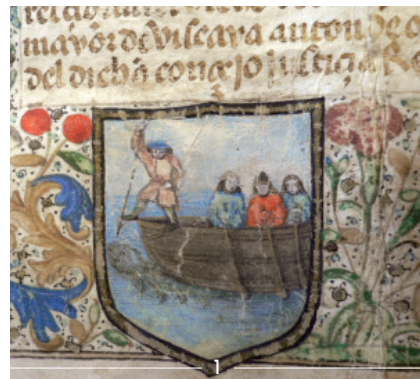 mayor de viscaya anton de c
del dicho concejo justiçia Re
1